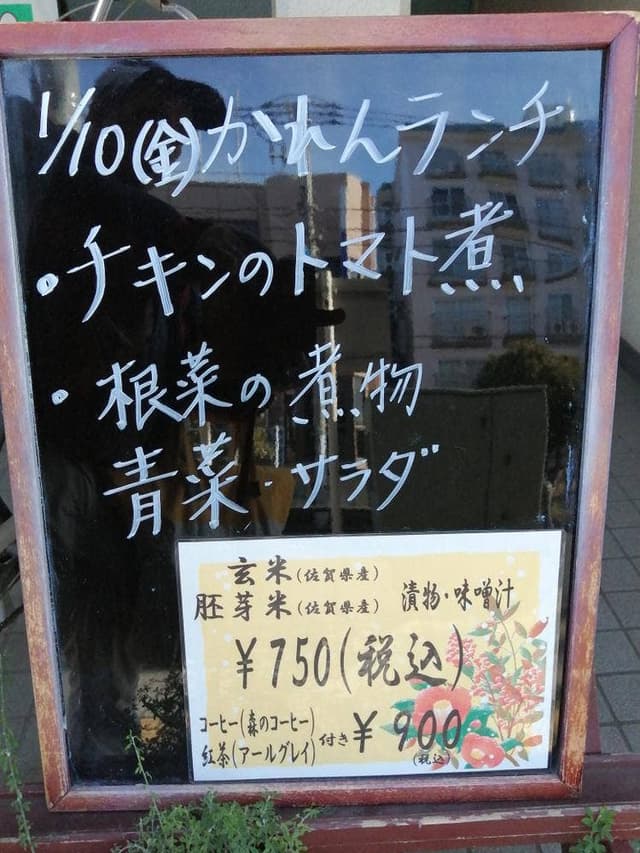 1/10(金)かれんランチ
・チキンのトマト煮
・根菜の煮物
青菜・サラダ
玄米(佐賀県産)
胚芽米(佐賀県産) 漬物・味噌汁
¥750(税込)
コーヒー(森のコーヒー)
紅茶(アールグレイ) 付き ¥900
(税込)